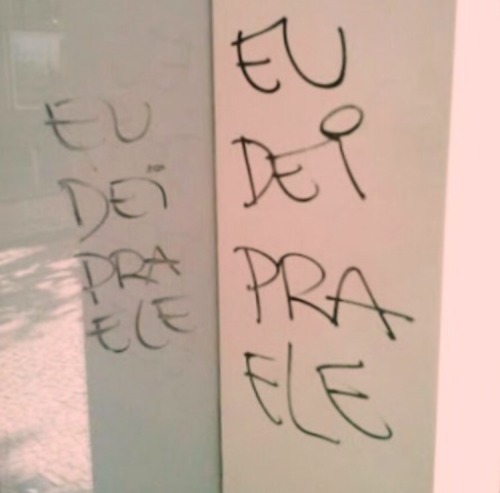 EU
DEI
PRA
ELE
EU
DEI
PRA
ELE